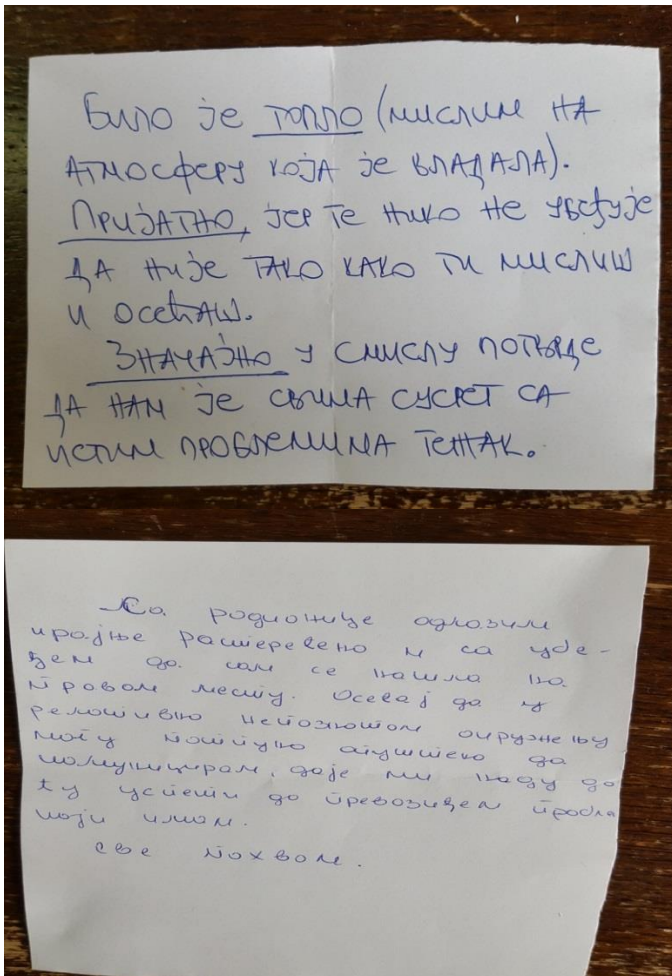 Било је топло (мислим на
атмосферу која је владала).
Пријатно, јер те нико не убеђује
да није тако како ти мислиш
и осећаш.
Значајно у смислу потврде
да нам је свима сусрет са
истим проблемима тежак.
Са радионице одлазим
крајње растерећено и са убе-
ђењем да сам се нашла на
правом месту. Осећај да у
релативно непознатом окружењу
могу потпуно опуштено да
комуницирам, даје ми наду да
ћу успети да превазиђем
који имам.
Све похвале.